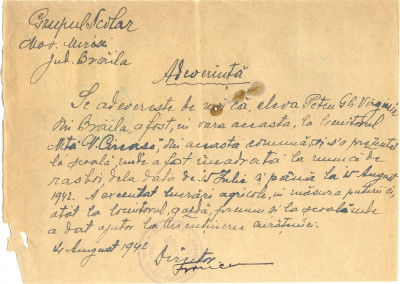 Grupul Școlar
Mov. Miresii
Jud. Brăila
Adeverință
Se adeverește de noi că, eleva Petcu Gh. Virginia
din Brăila, a fost, în vara aceasta, la locuitorul
N. din această comună, și s'a prezentat
la școală, unde a fost încadrată la munca de
rasboi, dela data de 15 Iulie și până la 15 August
1942. A executat lucrări agricole, în măsura puterii ei,
atât la locuitorul, gazdă, precum și la școală unde
a dat ajutor la întreținerea curățeniei.
August 1942
Director